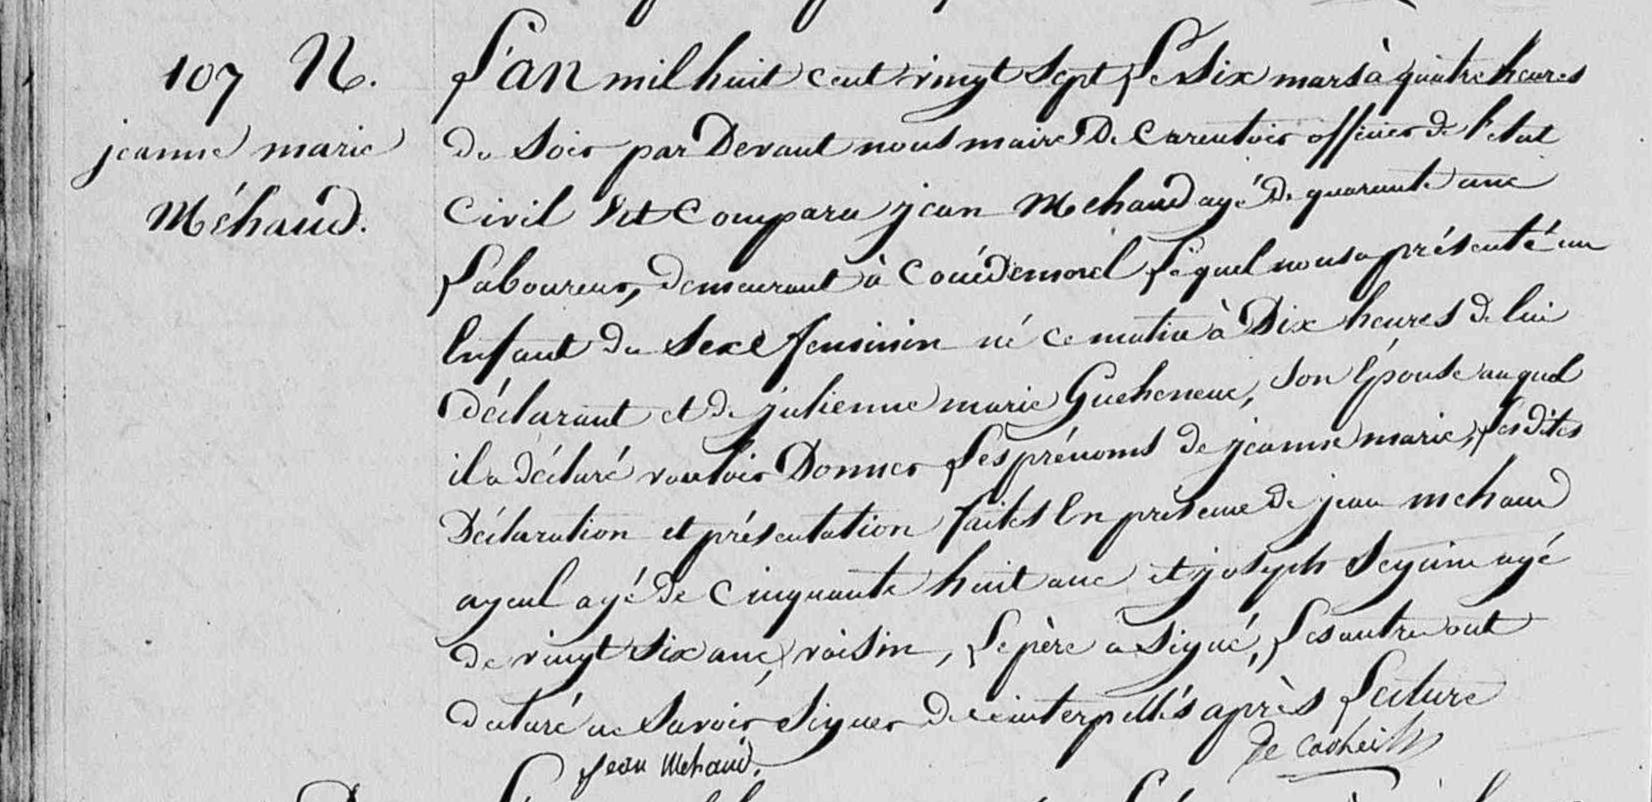 107 N.
jeanne marie
Méhaud.
L'an mil huit cent vingt sept le six mars à quatre heures
du soir par Devant nous maire De Carentoir officier de l'etat
Civil Est Comparu jean Mehaud agé de quarante ans
laboureur, demeurant à Couédemorel lequel nous a présenté un
Enfant du sexe feminin né ce matin à Dix heures de lui
déclarant et de julienne marie Gueheneuc, son Épouse auquel
il a déclaré vouloir Donner les prénoms de jeanne marie, lesdites
Déclaration et présentation faites En présence de jean mehaud
ayeul agé de cinquante huit ans et joseph Seguin agé
de vingt six ans, voisin, le père a signé, les autres ont
déclaré ne savoir signer de ce interpellés après lecture
jean Mehaud.